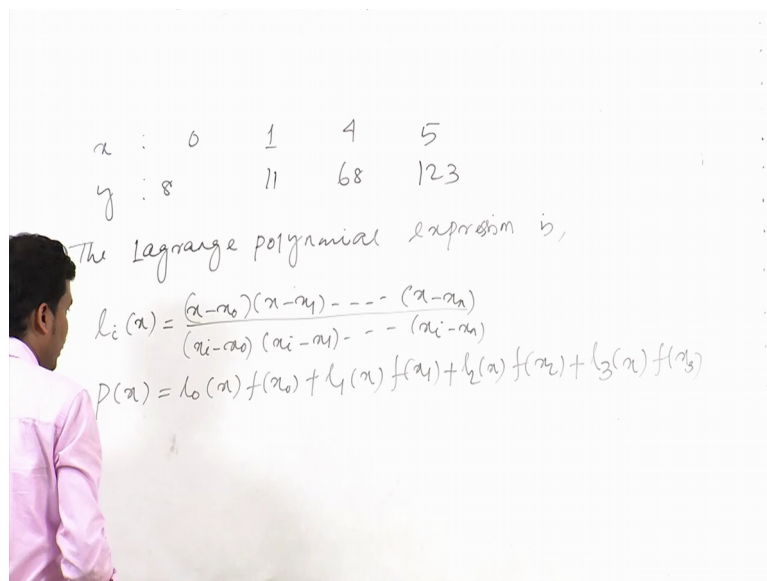 x : 0 1 4 5
y : 8 11 68 123
The Lagrange polynomial expression is,
lᵢ(x) = (x-x₀)(x-x₁) ---- (x-xₙ) / (xᵢ-x₀)(xᵢ-x₁)- -- (xᵢ-xₙ)
P(x) = l₀(x) f(x₀) + l₁(x) f(x₁) + l₂(x) f(x₂) + l₃(x) f(x₃)